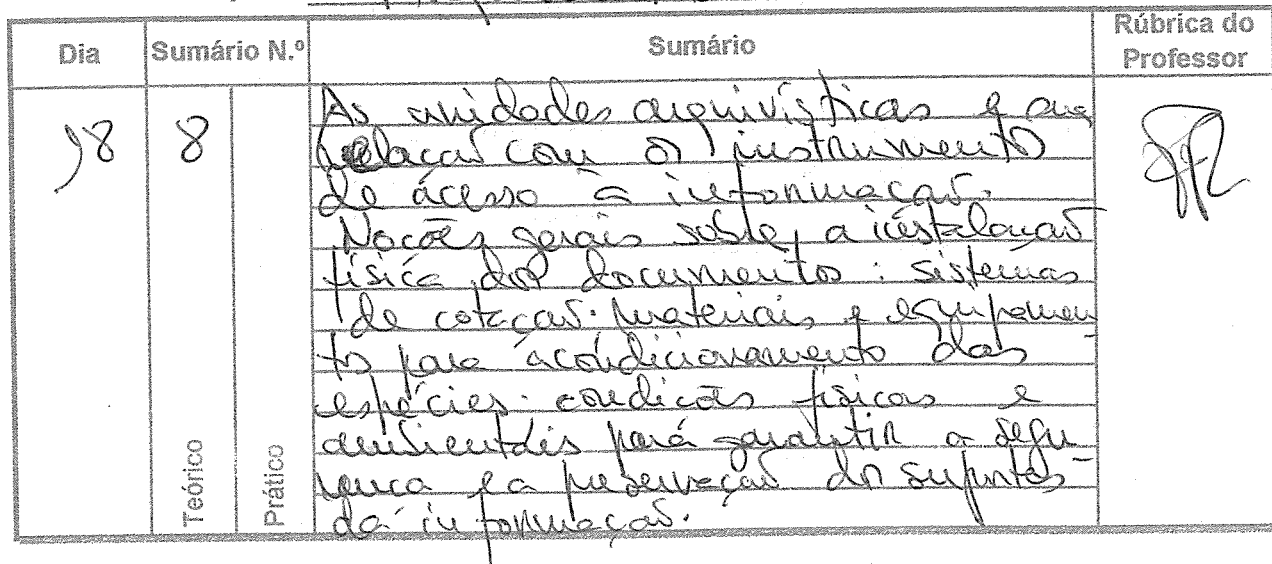 Dia Sumário N.º Sumário Rúbrica do Professor
Teórico Prático
18 8
As unidades arquivísticas e a
relação com os instrumentos
de acesso à informação.
Noções gerais sobre a instalação
física dos documentos: sistemas
de cotação. materiais e equipamen
to para acondicionamento das
espécies. condições físicas e
ambientais para garantir a segu
rança e a preservação dos suportes
da informação.